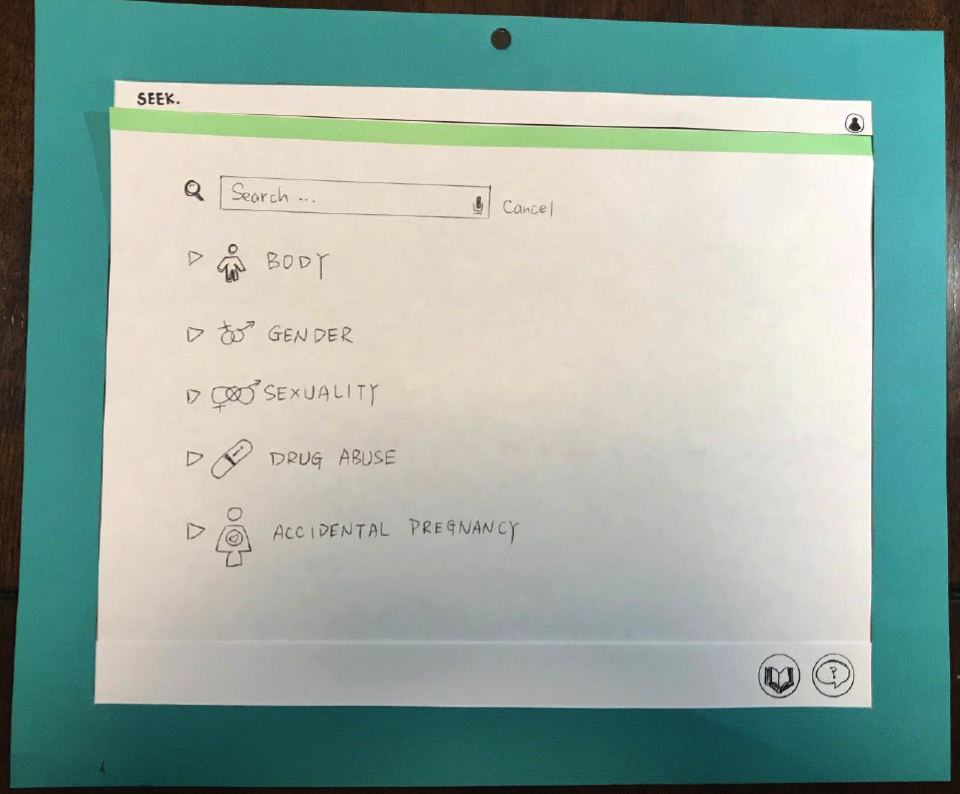 SEEK.
Search ...
Cancel
BODY
GENDER
SEXUALITY
DRUG ABUSE
ACCIDENTAL PREGNANCY
?